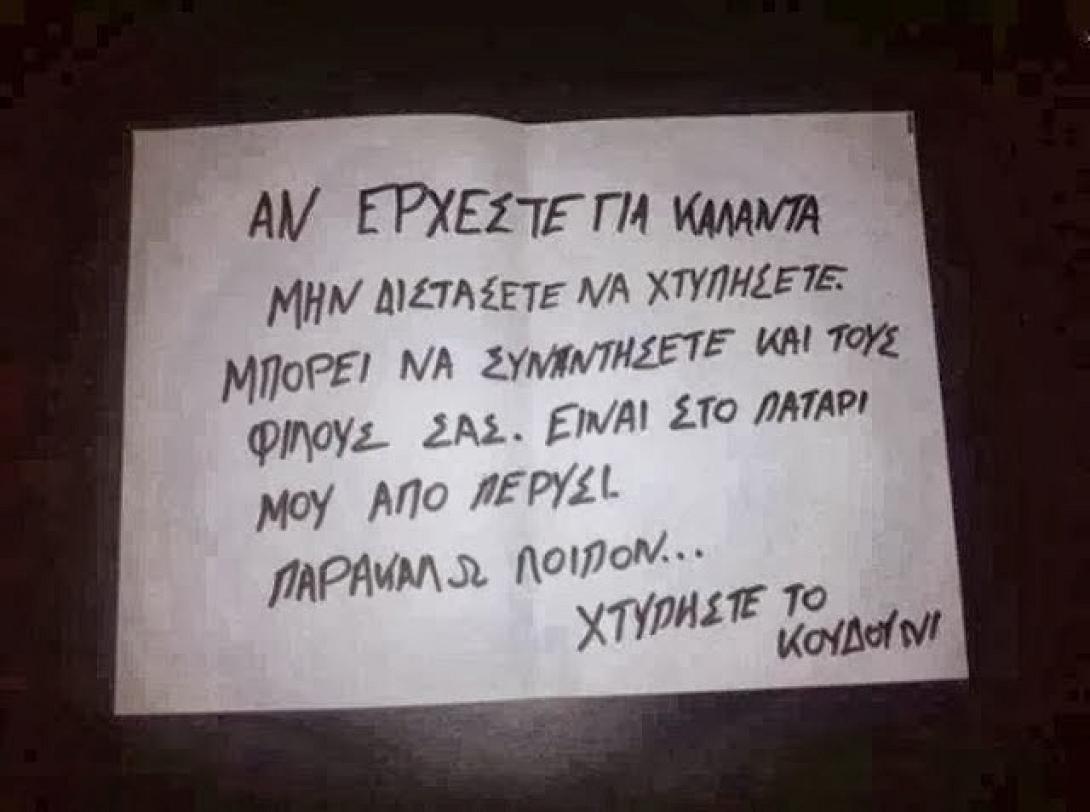 ΑΝ ΕΡΧΕΣΤΕ ΓΙΑ ΚΑΛΑΝΤΑ
ΜΗΝ ΔΙΣΤΑΣΕΤΕ ΝΑ ΧΤΥΠΗΣΕΤΕ.
ΜΠΟΡΕΙ ΝΑ ΣΥΝΑΝΤΗΣΕΤΕ ΚΑΙ ΤΟΥΣ
ΦΙΛΟΥΣ ΣΑΣ. ΕΙΝΑΙ ΣΤΟ ΠΑΤΑΡΙ
ΜΟΥ ΑΠΟ ΠΕΡΥΣΙ.
ΠΑΡΑΚΑΛΩ ΛΟΙΠΟΝ...
ΧΤΥΠΗΣΤΕ ΤΟ
ΚΟΥΔΟΥΝΙ